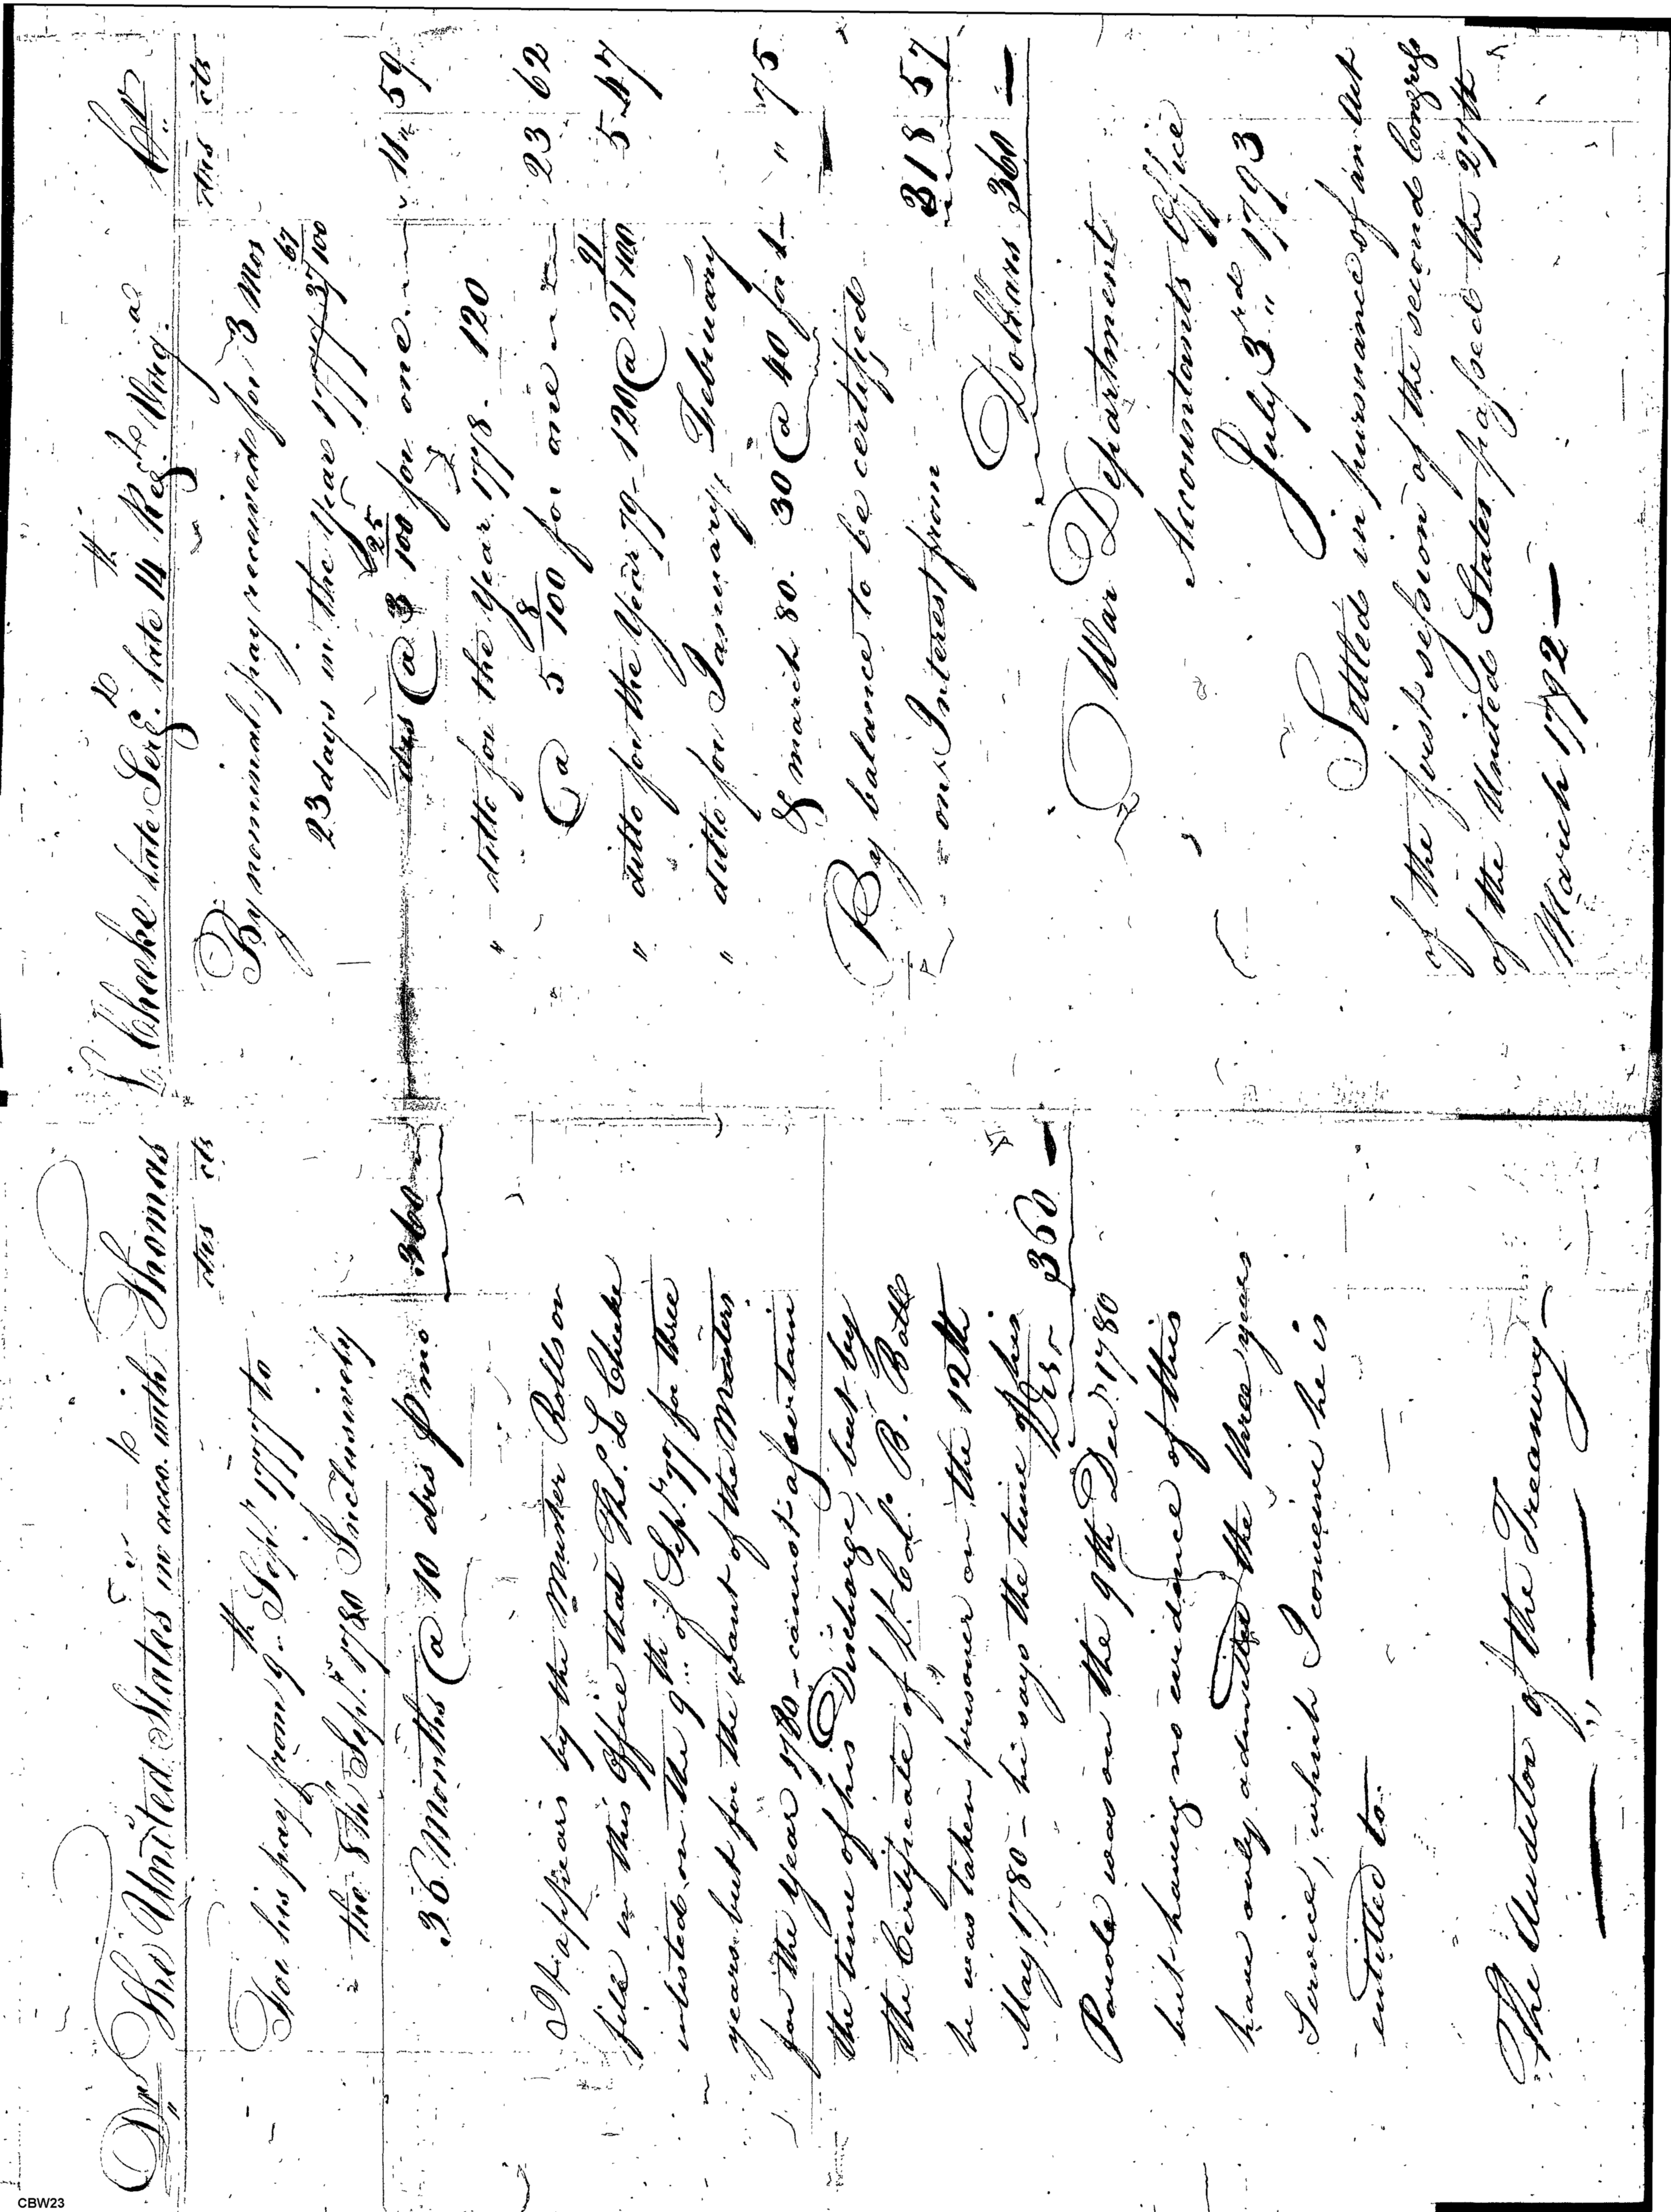 Dr The United States in acco. with Thomas L Cheeke late Serg.t late 14th Reg.t Virg.a Cr
drs cts
For his pay from 9th Sept.r 1777 to
the 8th Sept.r 1780 Inclusively
36 Months @ 10 drs p mo 360
It appears by the Muster Rolls on
file in this Office that Tho.s L Cheeke
inlisted on the 9th of Sept.r 77 for three
years but for the want of the Musters
for the year 1780 cannot ascertain
the time of his Discharge, but by
the Certificate of Lt. Col. B. Ball
he was taken prisoner on the 12th
May 1780 – he says the time of his
Drs 360 —
Parole was on the 9th Dec.r 1780
but having no evidence of this
have only admitted the three years
Service, which I conceive he is
entitled to.
The Auditor of the Treasury —
drs cts
By nominal pay received for 3 Mos
23 days in the Year 1777 37 67/100
drs @ 3 25/100 for one 11 59
" ditto for the Year 1778. 120
@ 5 8/100 for one 23 62
" ditto for the Year 79 – 120 @ 21 91/100 5 47
" ditto for January, February
& march 80. 30 @ 40 for 1 – " 75
By balance to be certified
on Interest from 318 57
Dollars 360 —
War Department
Accountants Office
July 3rd 1793
Settled in pursuance of an Act
of the first session of the second Congress
of the United States passed the 27th
March 1792 —
CBW23